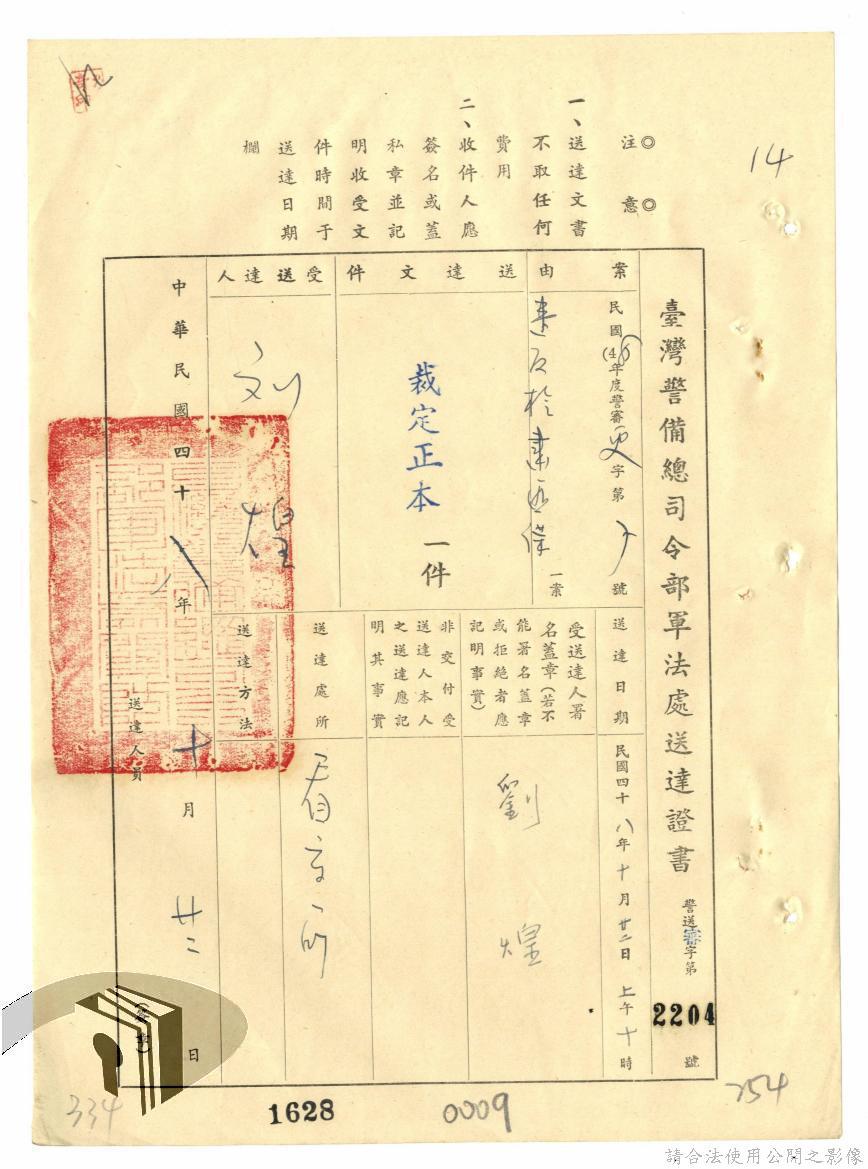 14
注意
一、送達文書
不取任何
費用
二、收件人應
簽名或蓋
私章並記
明收受文
件時間于
送達日期
欄
臺灣警備總司令部軍法處送達證書
警送審字第
2204
號
案由
民國(48年度警審更字第
號
一案
送達文件
裁定正本
一件
受送達人
刘煌
送達日期
民國四十八年十月廿二日上午十時
受送達人署
名蓋章(若不
能署名蓋章
或拒絕者應
記明事實)
劉煌
非交付受
送達人本人
之送達應記
明其事實
送達處所
看守所
送達方法
中華民國四十八年十月廿二日
送達人員
(簽章)
334
1628
0009
254
請合法使用公開之影像